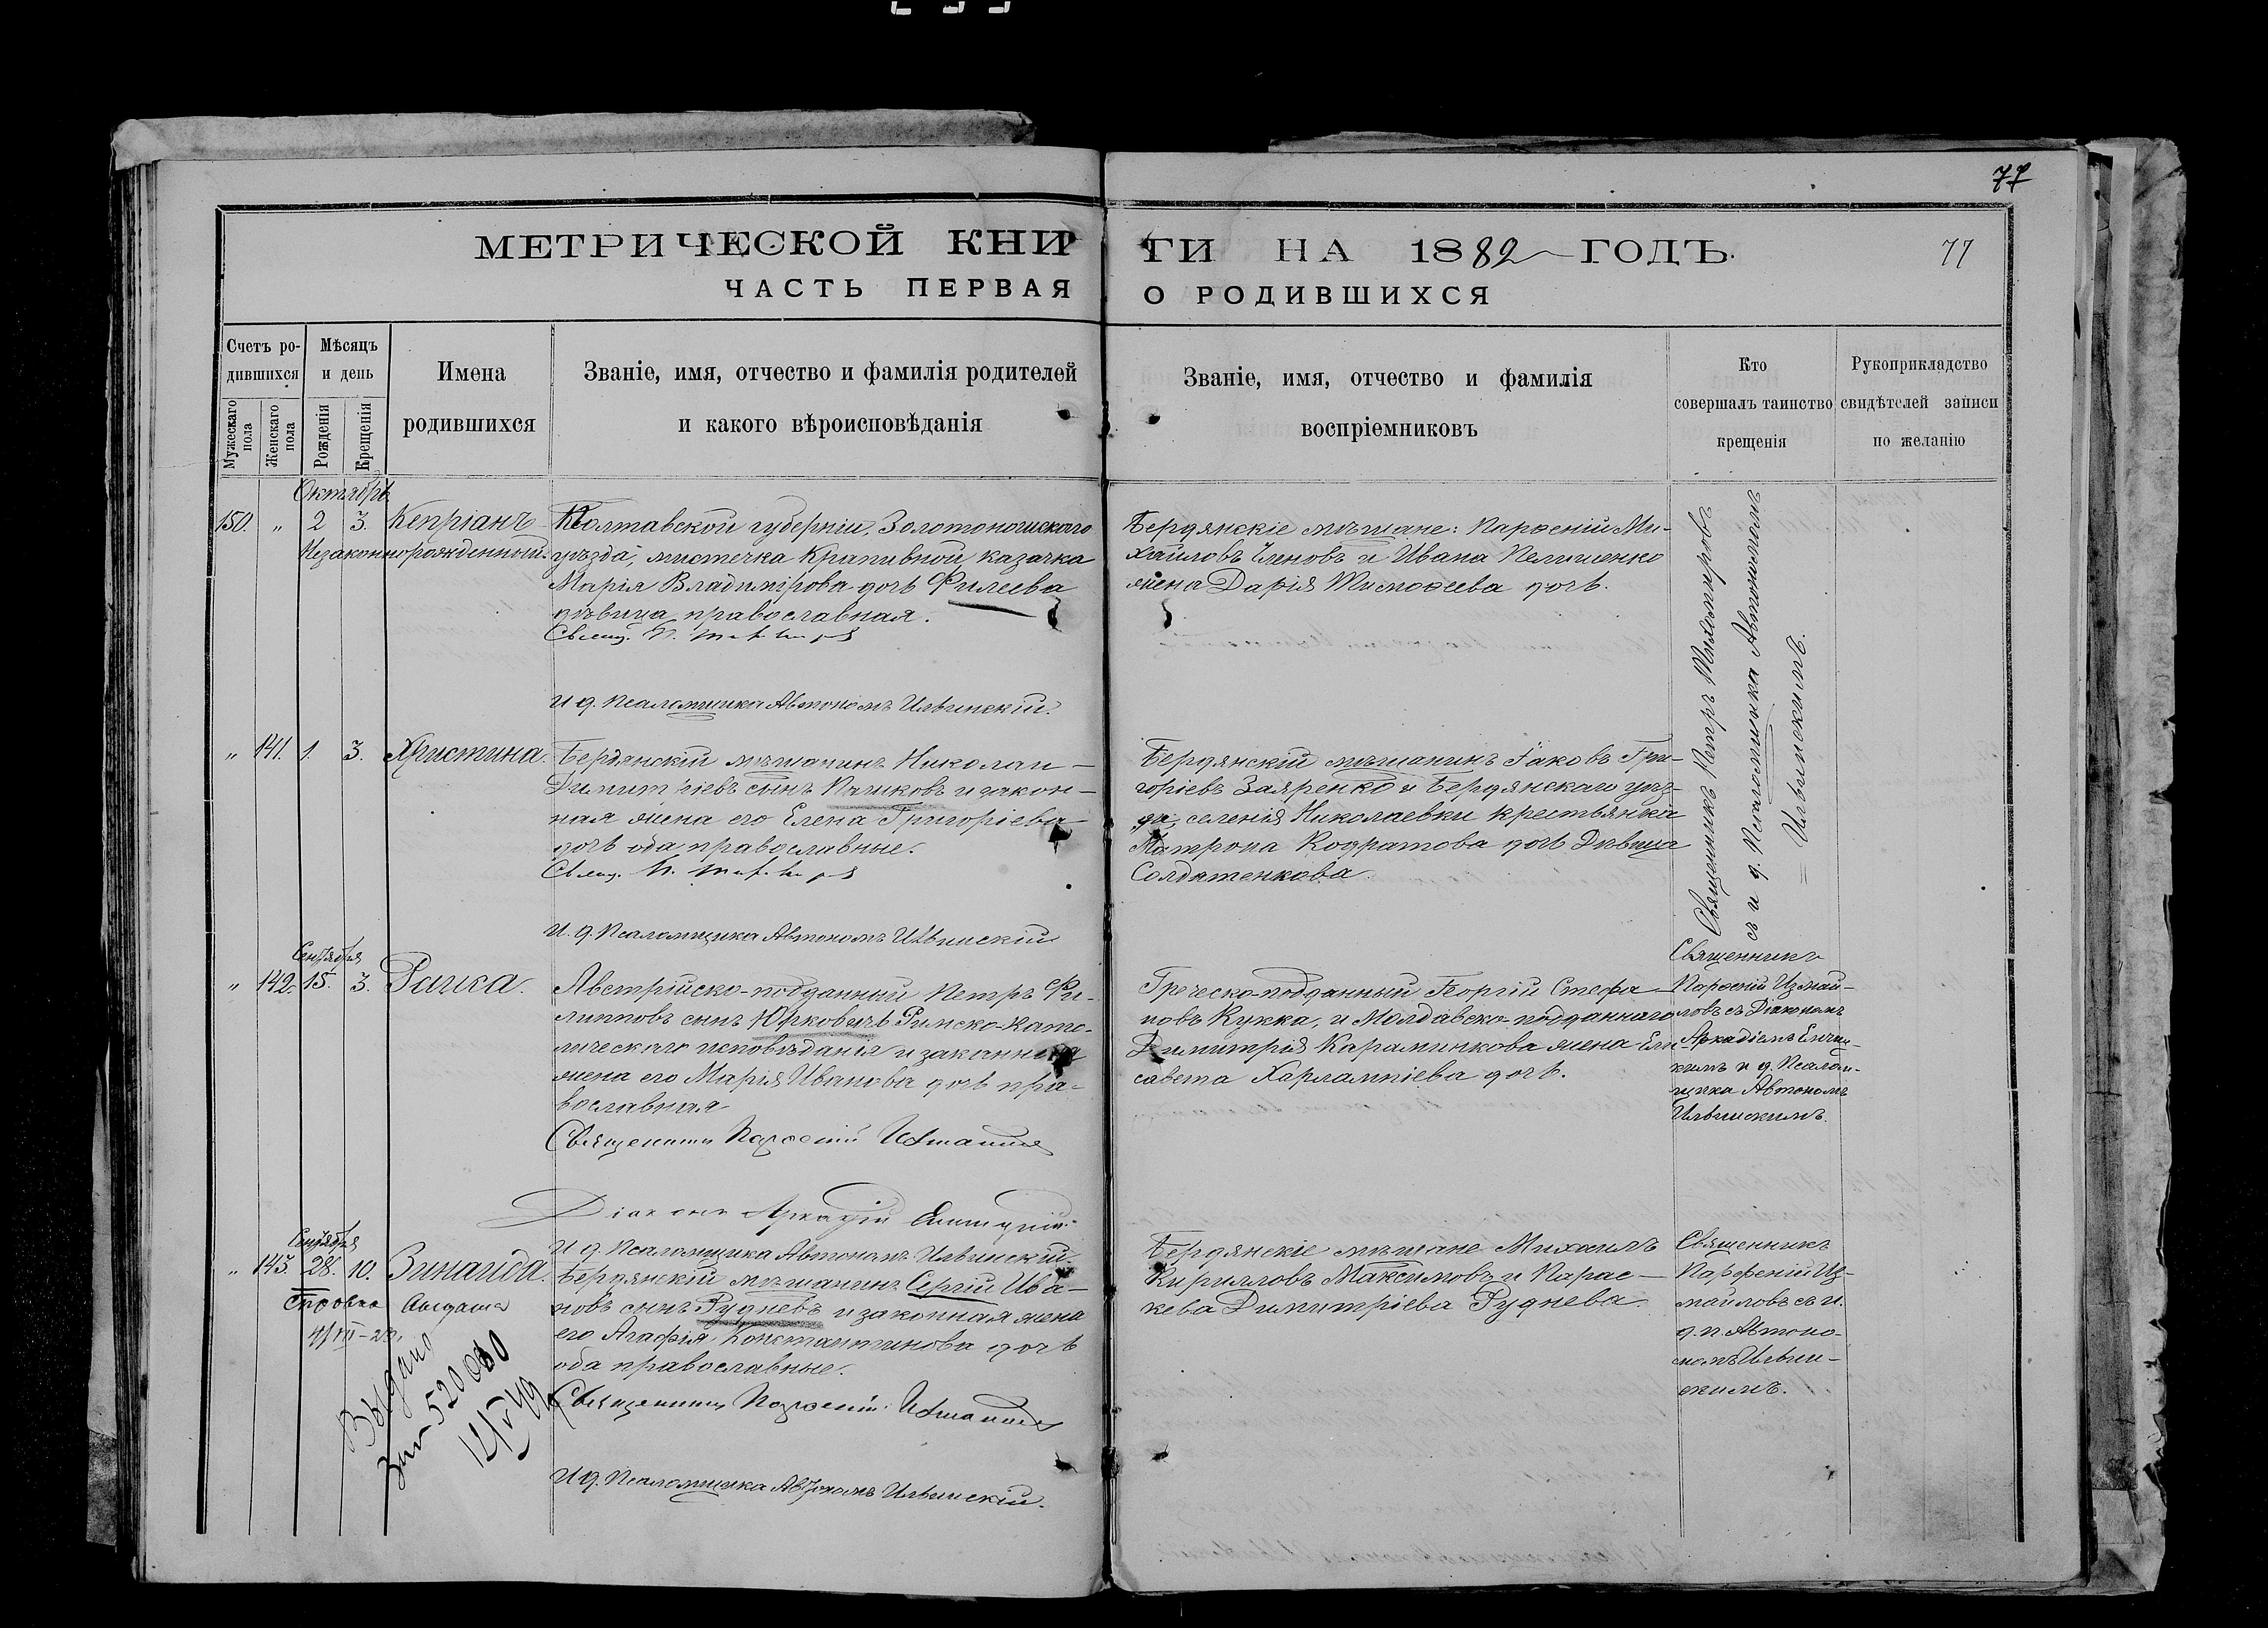 77
МЕТРИЧЕСКОЙ КНИ ГИ НА 1882 ГОДЪ. 77
ЧАСТЬ ПЕРВАЯ О РОДИВШИХСЯ
Счетъ ро-
дившихся
Мужескаго пола
Женскаго пола
Мѣсяцъ
и день
Рожденія
Крещенія
Имена
родившихся
Званіе, имя, отчество и фамилія родителей
и какого вѣроисповѣданія
Званіе, имя, отчество и фамилія
воспріемниковъ
Кто
совершалъ таинство
крещенія
Рукоприкладство
свидѣтелей записи
по желанію
Октябрь
150. " 2 3. Кепріанъ
Незаконнорожденный.
Полтавской губерніи, Золотоношскаго
уѣзда, мистечка Крапивной, казачка
Марія Владимірова дочь Филеева
дѣвица православная.
Свящ. П.
И д. Псаломщика Автономъ Ильинскій.
Бердянскіе мѣщане: Парѳеній Ми-
хайловъ и Ивана
жена Дарія Тимоѳеева дочь.
Священникъ Петръ Тихомировъ
съ и д. Псаломщика Автономомъ
= Ильинскимъ.
" 141. 1. 3. Христина.
Бердянскій мѣщанинъ Николай
Димитріевъ сынъ Пашковъ и закон-
ная жена его Елена Григоріева
дочь оба православные.
Свящ. П.
И. д. Псаломщика Автономъ Ильинскій
Бердянскій мѣщанинъ Іаковъ Гри-
горіевъ Заяренко и Бердянскаго уѣз-
да, селенія Николаевки крестьянка
Матрона Кодратова дочь Дѣвица
Солдатенкова.
Сентября
" 142. 15. 3. Раиса.
Австрійско-подданный Петръ Фи-
липповъ сынъ Юрковичъ Римско-като-
лическаго исповѣданія и законная
жена его Марія Иванова дочь пра-
вославная
Священникъ Парѳеній Измаиловъ
Діаконъ Аркадій
И д. Псаломщика Автономъ Ильинскій.
Греческо-подданный Георгій Стефа-
новъ Кукка, и Молдавско-подданнаго
Димитрія Караминкова жена Ели-
савета Харлампіева дочь.
Священникъ
Парѳеній Измаи-
ловъ съ Діакономъ
Аркадіемъ
и д. Псалом-
щика Автономъ
Ильинскимъ.
Сентября
" 143. 28. 10. Зинаида.
Бердянскій мѣщанинъ Сергій Ива-
новъ сынъ Рудневъ и законная жена
его Агафія Константинова дочь
оба православные.
Священникъ Парѳеній Измаиловъ
И д. Псаломщика Автономъ Ильинскій.
Бердянскіе мѣщане Михаилъ
Кирилловъ Максимовъ и Парас-
кева Димитріева Руднева.
Священникъ
Парфеній Из-
маиловъ съ и.
д. п. Автоно-
момъ Ильин-
скимъ.
Справка выдана
Выдано
520